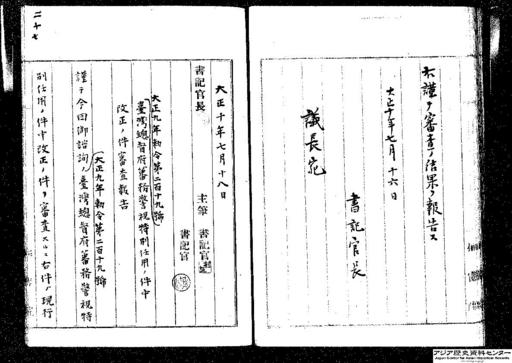 右謹テ審査ノ結果ヲ報告ス
大正十年七月十六日
書記官長
議長宛
大正十年七月十八日
書記官長
主筆 書記官
書記官
大正九年勅令第二百十九號
(臺灣總督府蕃務警視特別任用ノ件中
改正ノ件審査報告
謹テ今回御諮詢ノ臺灣總督府蕃務警視特
(大正九年勅令第二百十九號
別任用ノ件中改正ノ件ヲ審査スルニ右件ノ現行
二十七
アジア歴史資料センター
Japan Center for Asian Historical Records